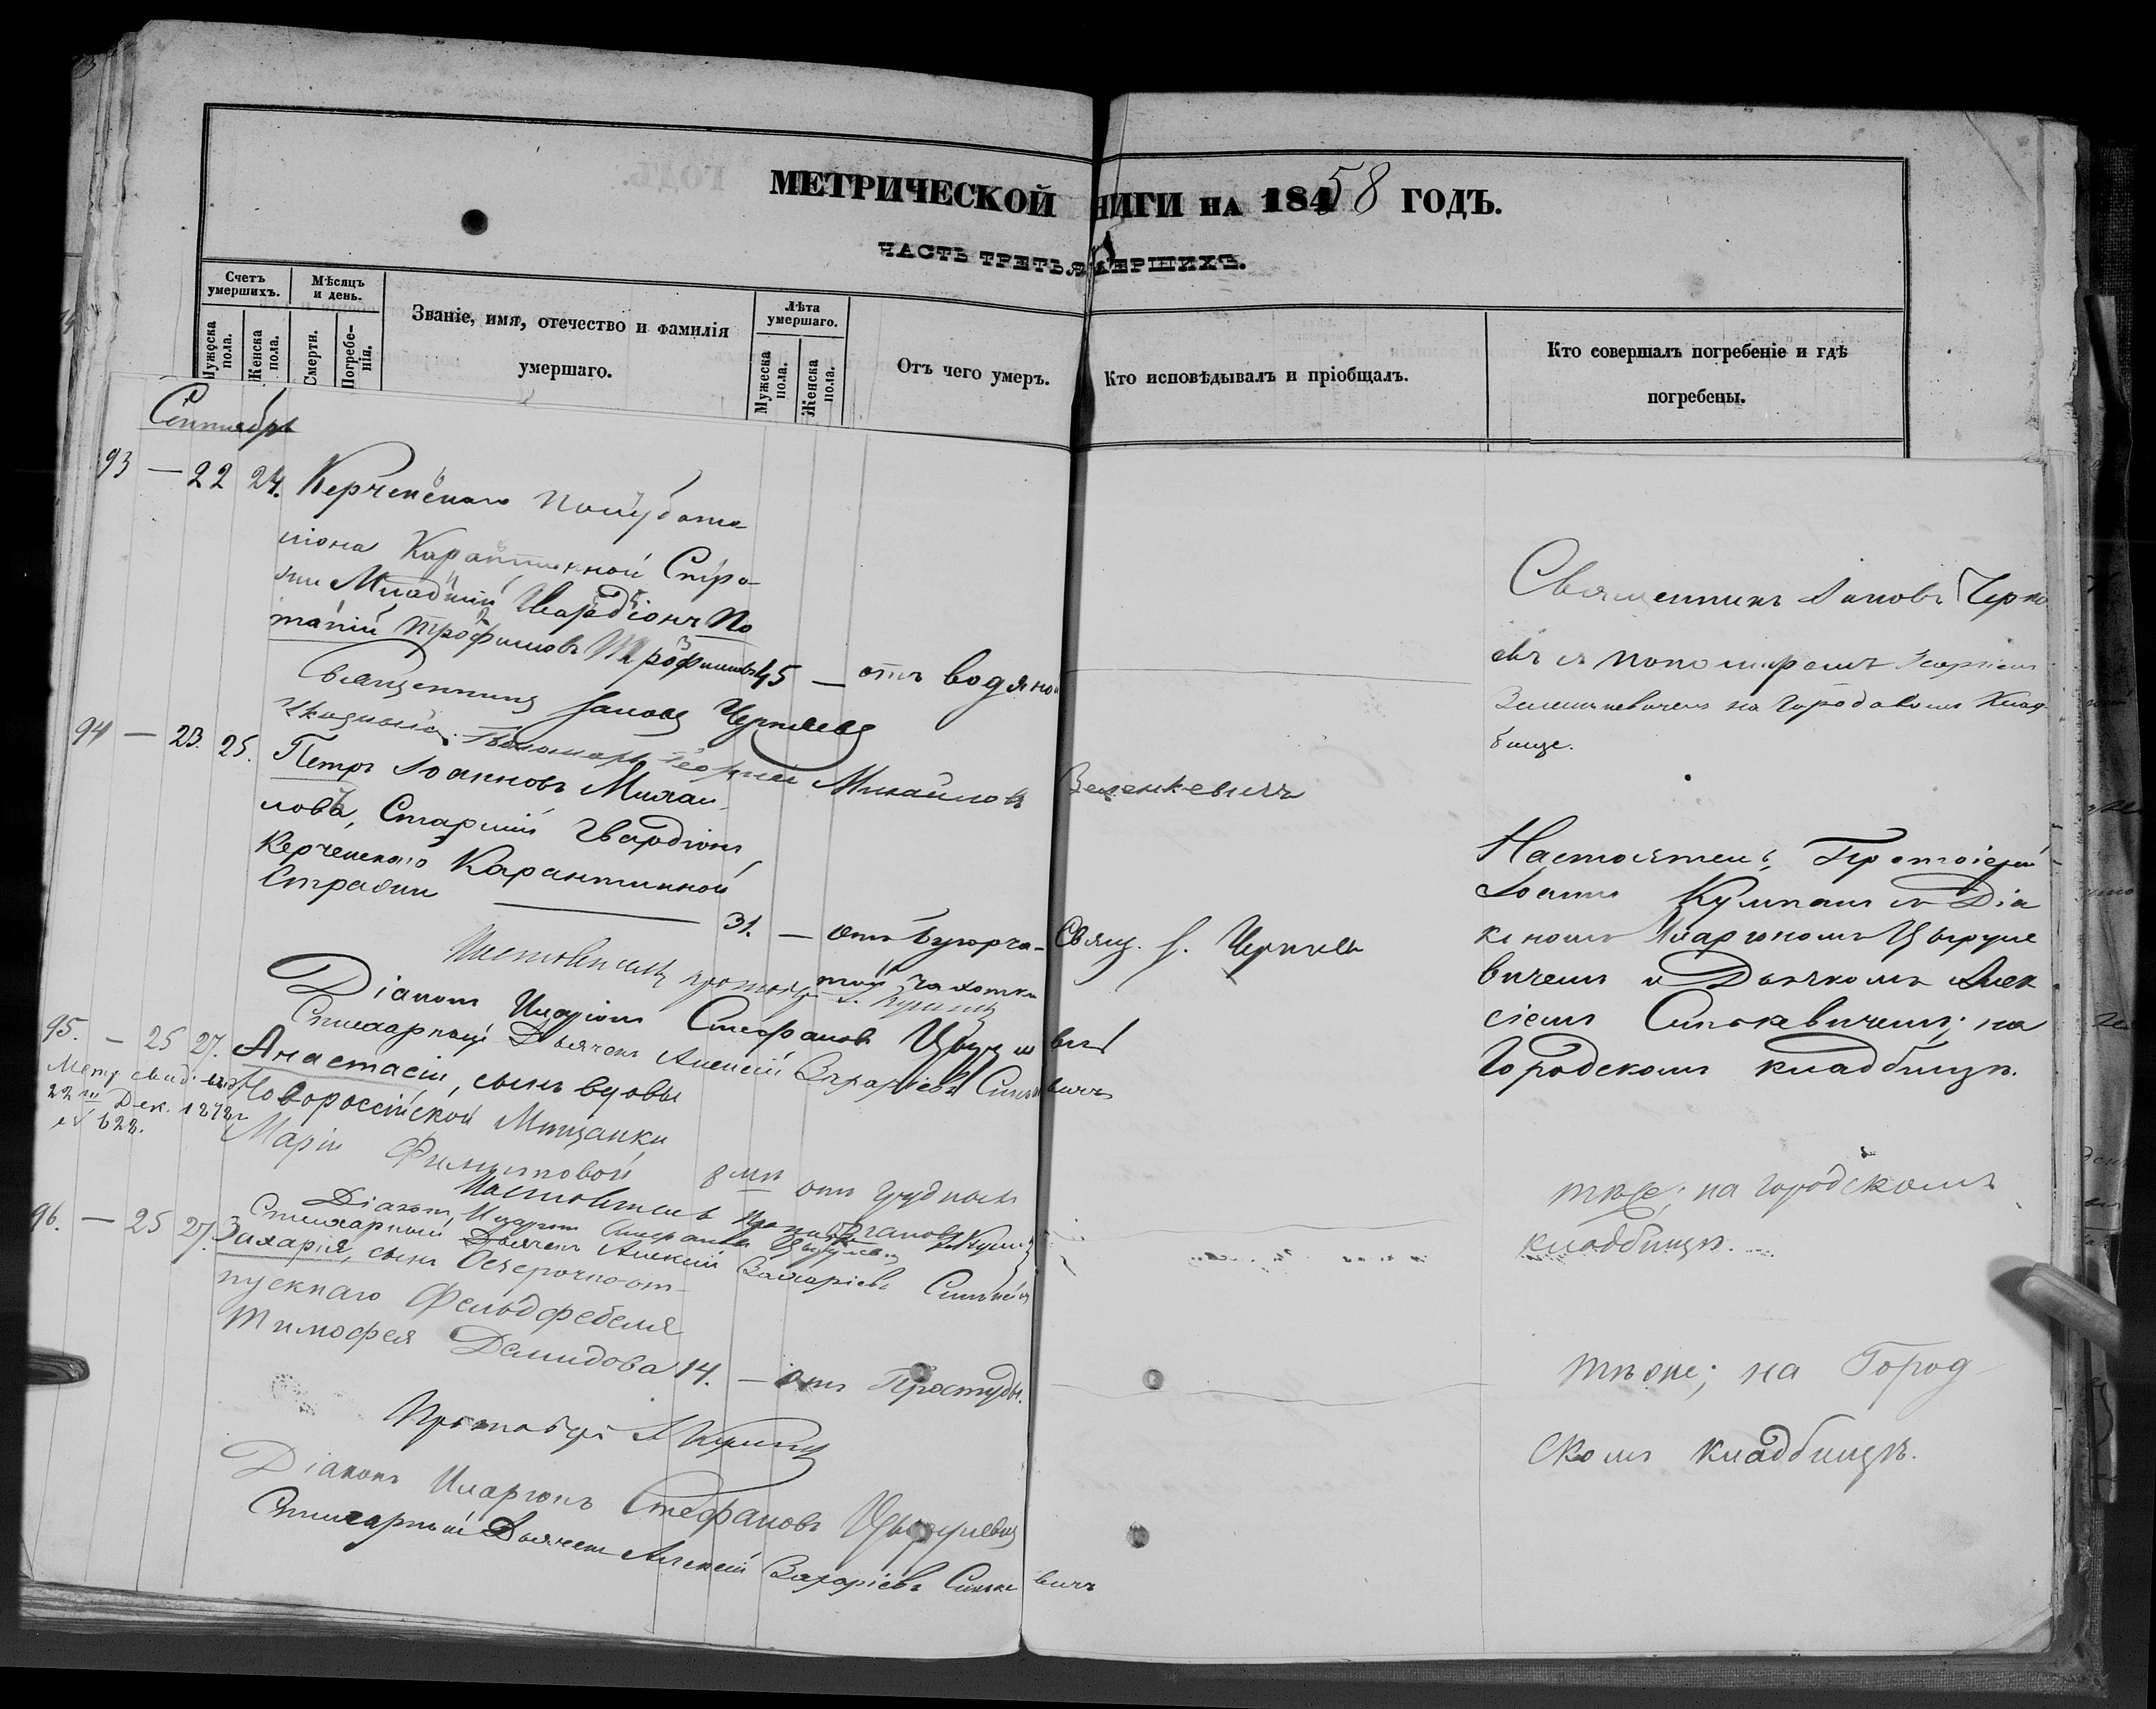 МЕТРИЧЕСКОЙ НИГИ НА 18458 ГОДЪ.
ЧАСТЬ ТРЕТЬЯ МЕРШИХЪ.
Счетъ умершихъ.
Мужеска пола.
Женска пола.
Мѣсяцъ и день.
Смерти.
Погребе-нія.
Званіе, имя, отечество и фамилія
умершаго.
Лѣта умершаго.
Мужеска пола.
Женска пола.
Отъ чего умеръ.
Кто исповѣдывалъ и пріобщалъ.
Кто совершалъ погребеніе и гдѣ
погребены.
Сентябрь
93 — 22 24. Керченскаго полубата
ліона Карантинной Стра-
жи Младшій Гвардіонъ По
тапій Трофимовъ Трофимовъ 45 — отъ водяной
Священникъ Іаковъ Черняевъ
Пономарь Георгій Михайловъ Зеленкевичъ
Священникъ Іаковъ Черня
евъ съ пономаремъ Георгіем
Зеленкевичемъ на Городскомъ Клад
бище.
94 — 23. 25. Петръ Іоанновъ Михаи
ловъ, Старшій Гвардіонъ
Керченскаго Карантинной
Стражи — 31. — отъ бугорча-
той чахотки
Свящ. І. Черняевъ
Настоятель, Протоіерей
Іоаннъ Кумпанъ съ Діа
кономъ Иларіономъ Цыруле
вичемъ и Дьячкомъ Алек
сіемъ Синькевичемъ; на
Городскомъ кладбищѣ.
Настоятель протоіер.
Діаконъ Иларіонъ Стефановъ Цырулевичъ
Стихарный Дьячекъ Алексій Захаріевъ Синькевичъ
95. — 25 27. Анастасій, сынъ вдовы
Новороссійской Мѣщанки
Маріи Филиповой 8 мц отъ грудной
Метр. свид. выд.
22 го Дек. 1878 г.
№ 628.
тѣже; на городскомъ
кладбищѣ.
Настоятель
Діаконъ Иларіонъ Стефановъ Цырулевичъ
Стихарный Дьячекъ Алексій Захаріевъ Синькевичъ
96. — 25 27. Захарія, сынъ безсрочно-от-
пускнаго Фельдфебеля
Тимофея Демидова 14. — отъ Простуды.
тѣже; на Город
скомъ кладбищѣ.
Протоіерей І Кумпанъ
Діаконъ Иларіонъ Стефановъ Цырулевичъ
Стихарный Дьячекъ Алексій Захаріевъ Синькевичъ